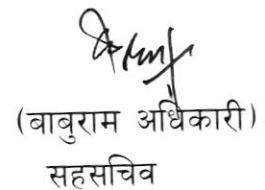 (बाबुराम अधिकारी)
सहसचिव